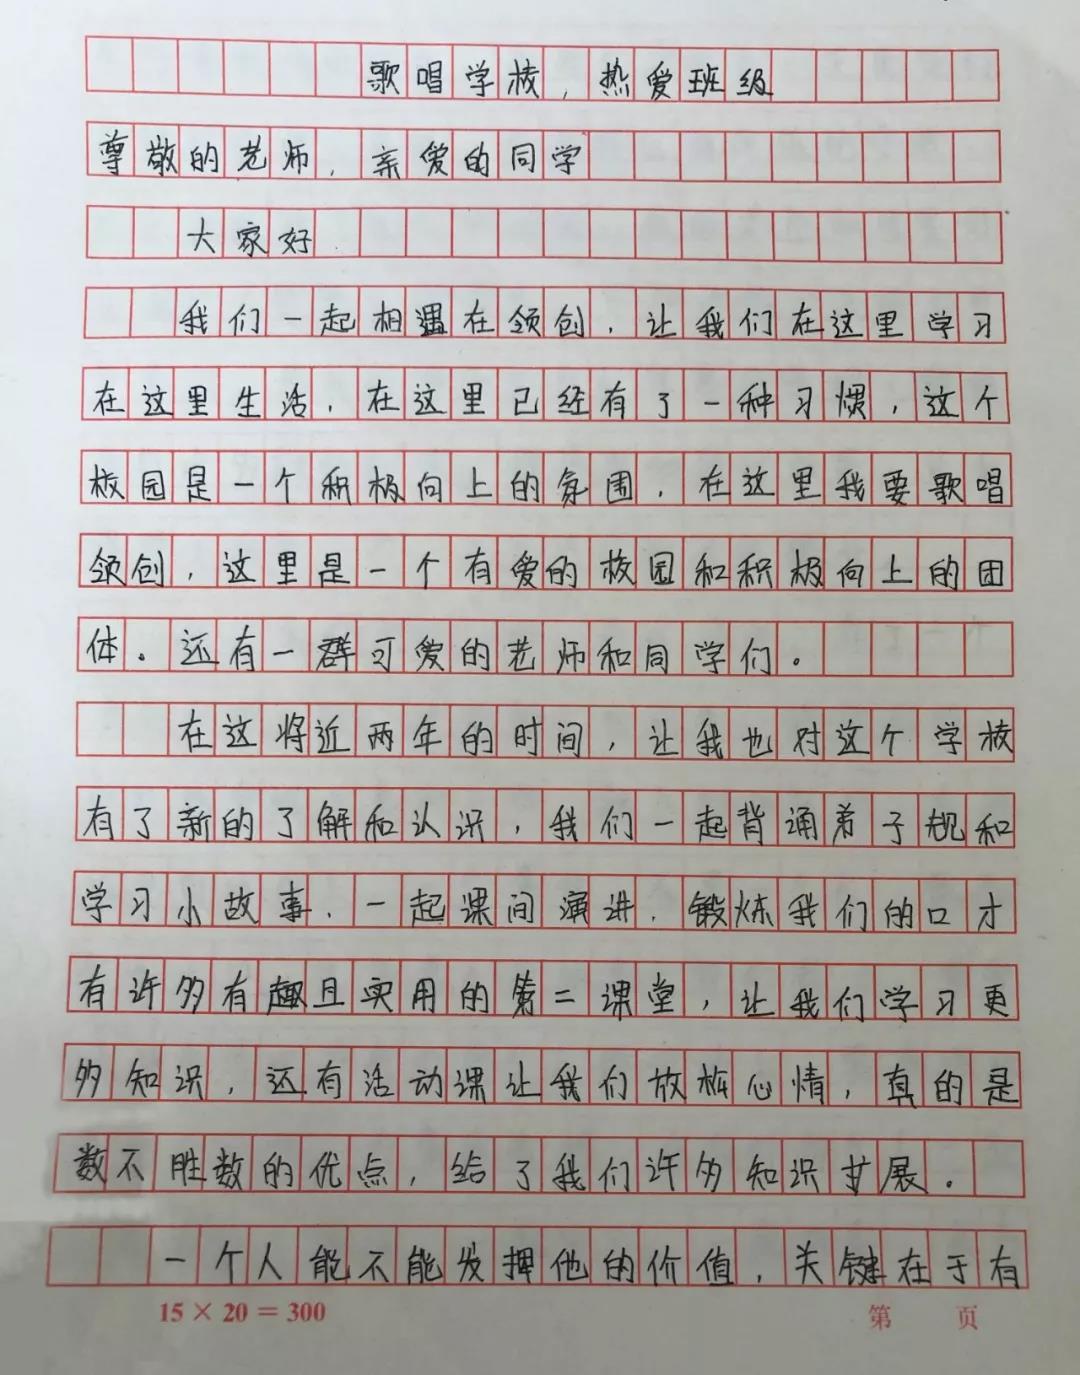 歌唱学校，热爱班级
尊敬的老师，亲爱的同学
大家好
我们一起相遇在领创，让我们在这里学习
在这里生活，在这里已经有了一种习惯，这个
校园是一个积极向上的氛围，在这里我要歌唱
领创，这里是一个有爱的校园和积极向上的团
体。还有一群可爱的老师和同学们。
在这将近两年的时间，让我也对这个学校
有了新的了解和认识，我们一起背诵弟子规和
学习小故事，一起课间演讲，锻炼我们的口才
有许多有趣且实用的第二课堂，让我们学习更
多知识，还有活动课让我们放松心情，真的是
数不胜数的优点，给了我们许多知识扩展。
一个人能不能发挥他的价值，关键在于有
15 × 20 = 300 第 页